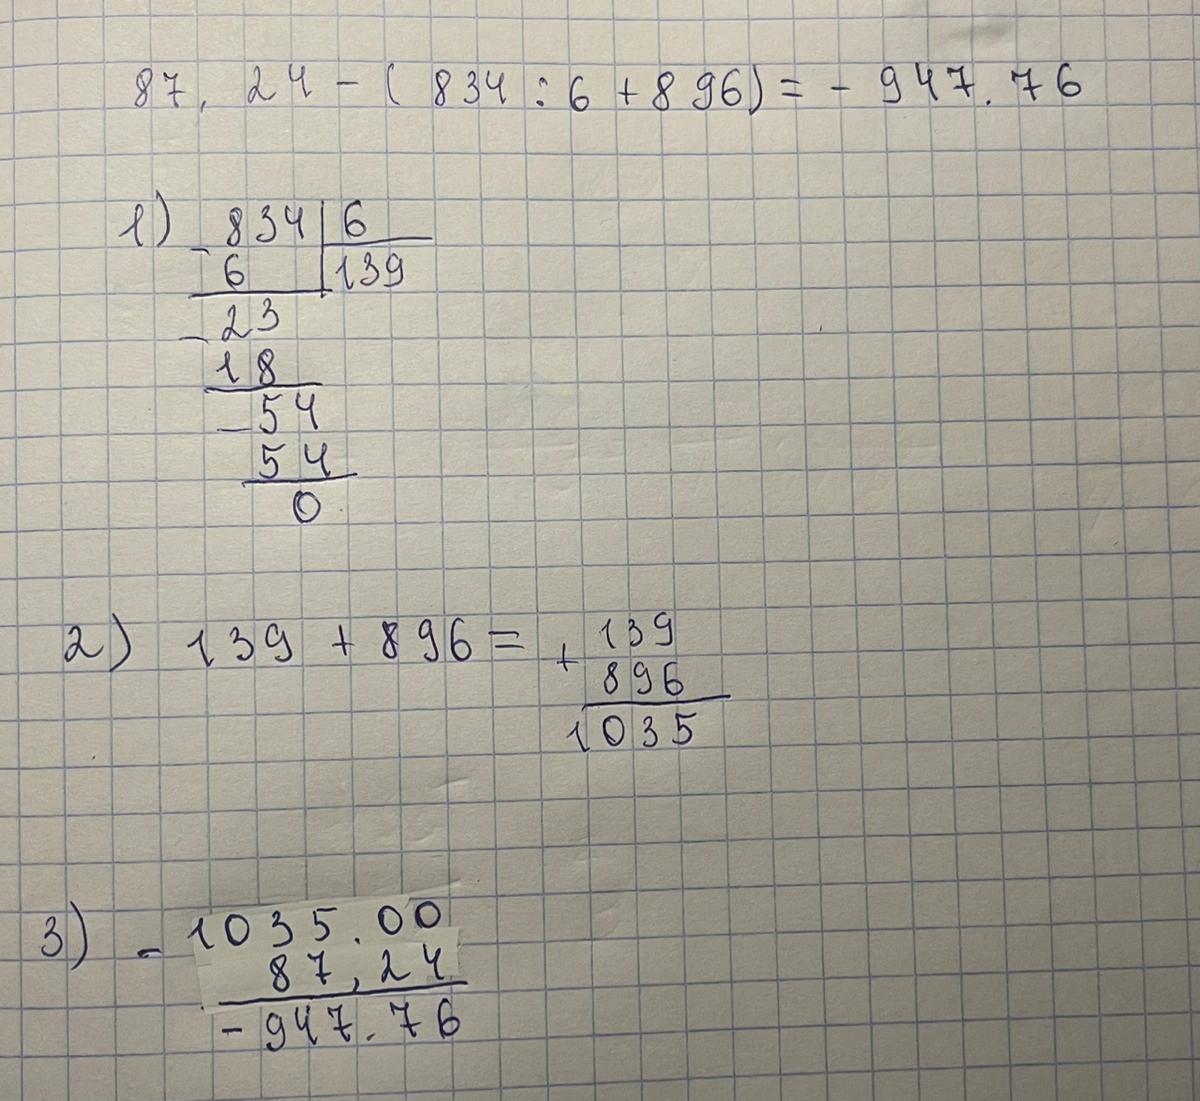 87, 24 - ( 834 : 6 + 896) = - 947.76
1) - 834 | 6
6 | 139
- 23
18
- 54
54
0
2) 139 + 896 = + 139
896
1035
3) - 1035.00
87,24
- 947.76